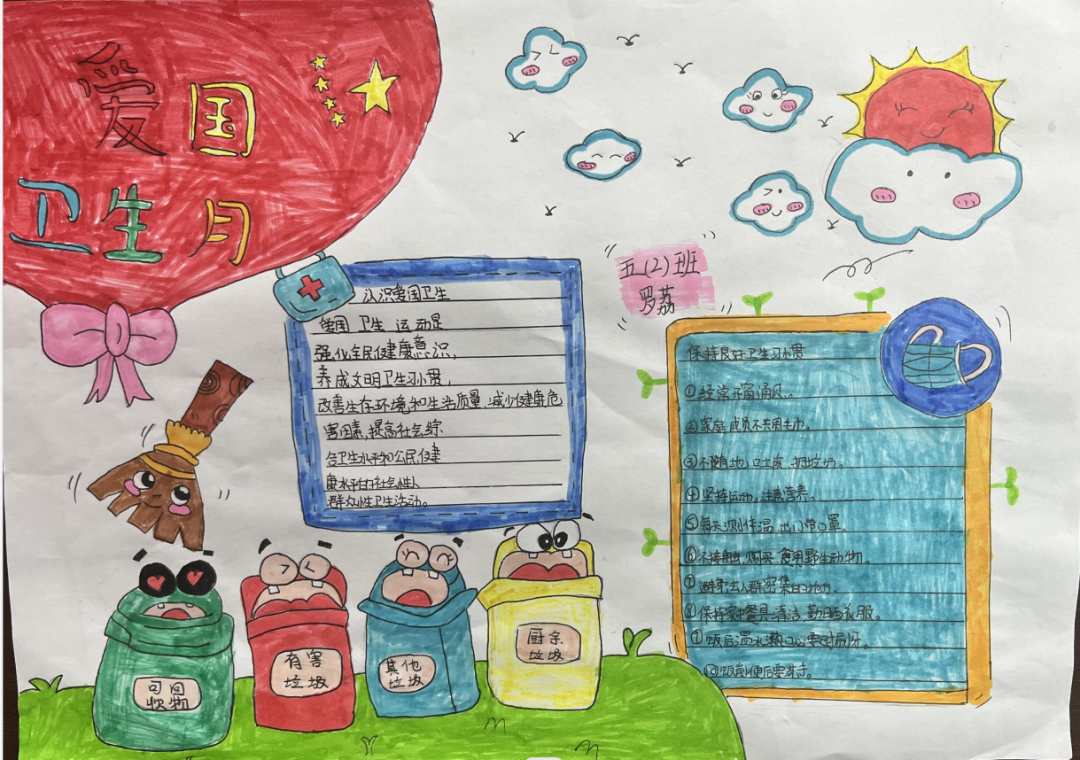 爱国
卫生月
认识爱国卫生
爱国 卫生 运动是
强化全民健康意识,
养成文明卫生习惯,
改善生存环境和生活质量,减少健康危
害因素,提高社会综
合卫生水平和公民健
康水平的社会性人
群众性卫生活动。
五(2)班
罗荔
保持良好卫生习惯
①经常开窗通风。
②家庭成员不共用毛巾。
③不随地口吐痰,扔垃圾。
④坚持运动,注意营养。
⑤每天测体温 出门带口罩。
⑥不接触 购买 食用野生动物。
⑦避免去人群密集的地方。
⑧保持家中餐具清洁 勤晒衣服。
饭后温水漱口
⑩饭前便后要洗手。
可回
收物
有害
垃圾
其他
垃圾
厨余
垃圾